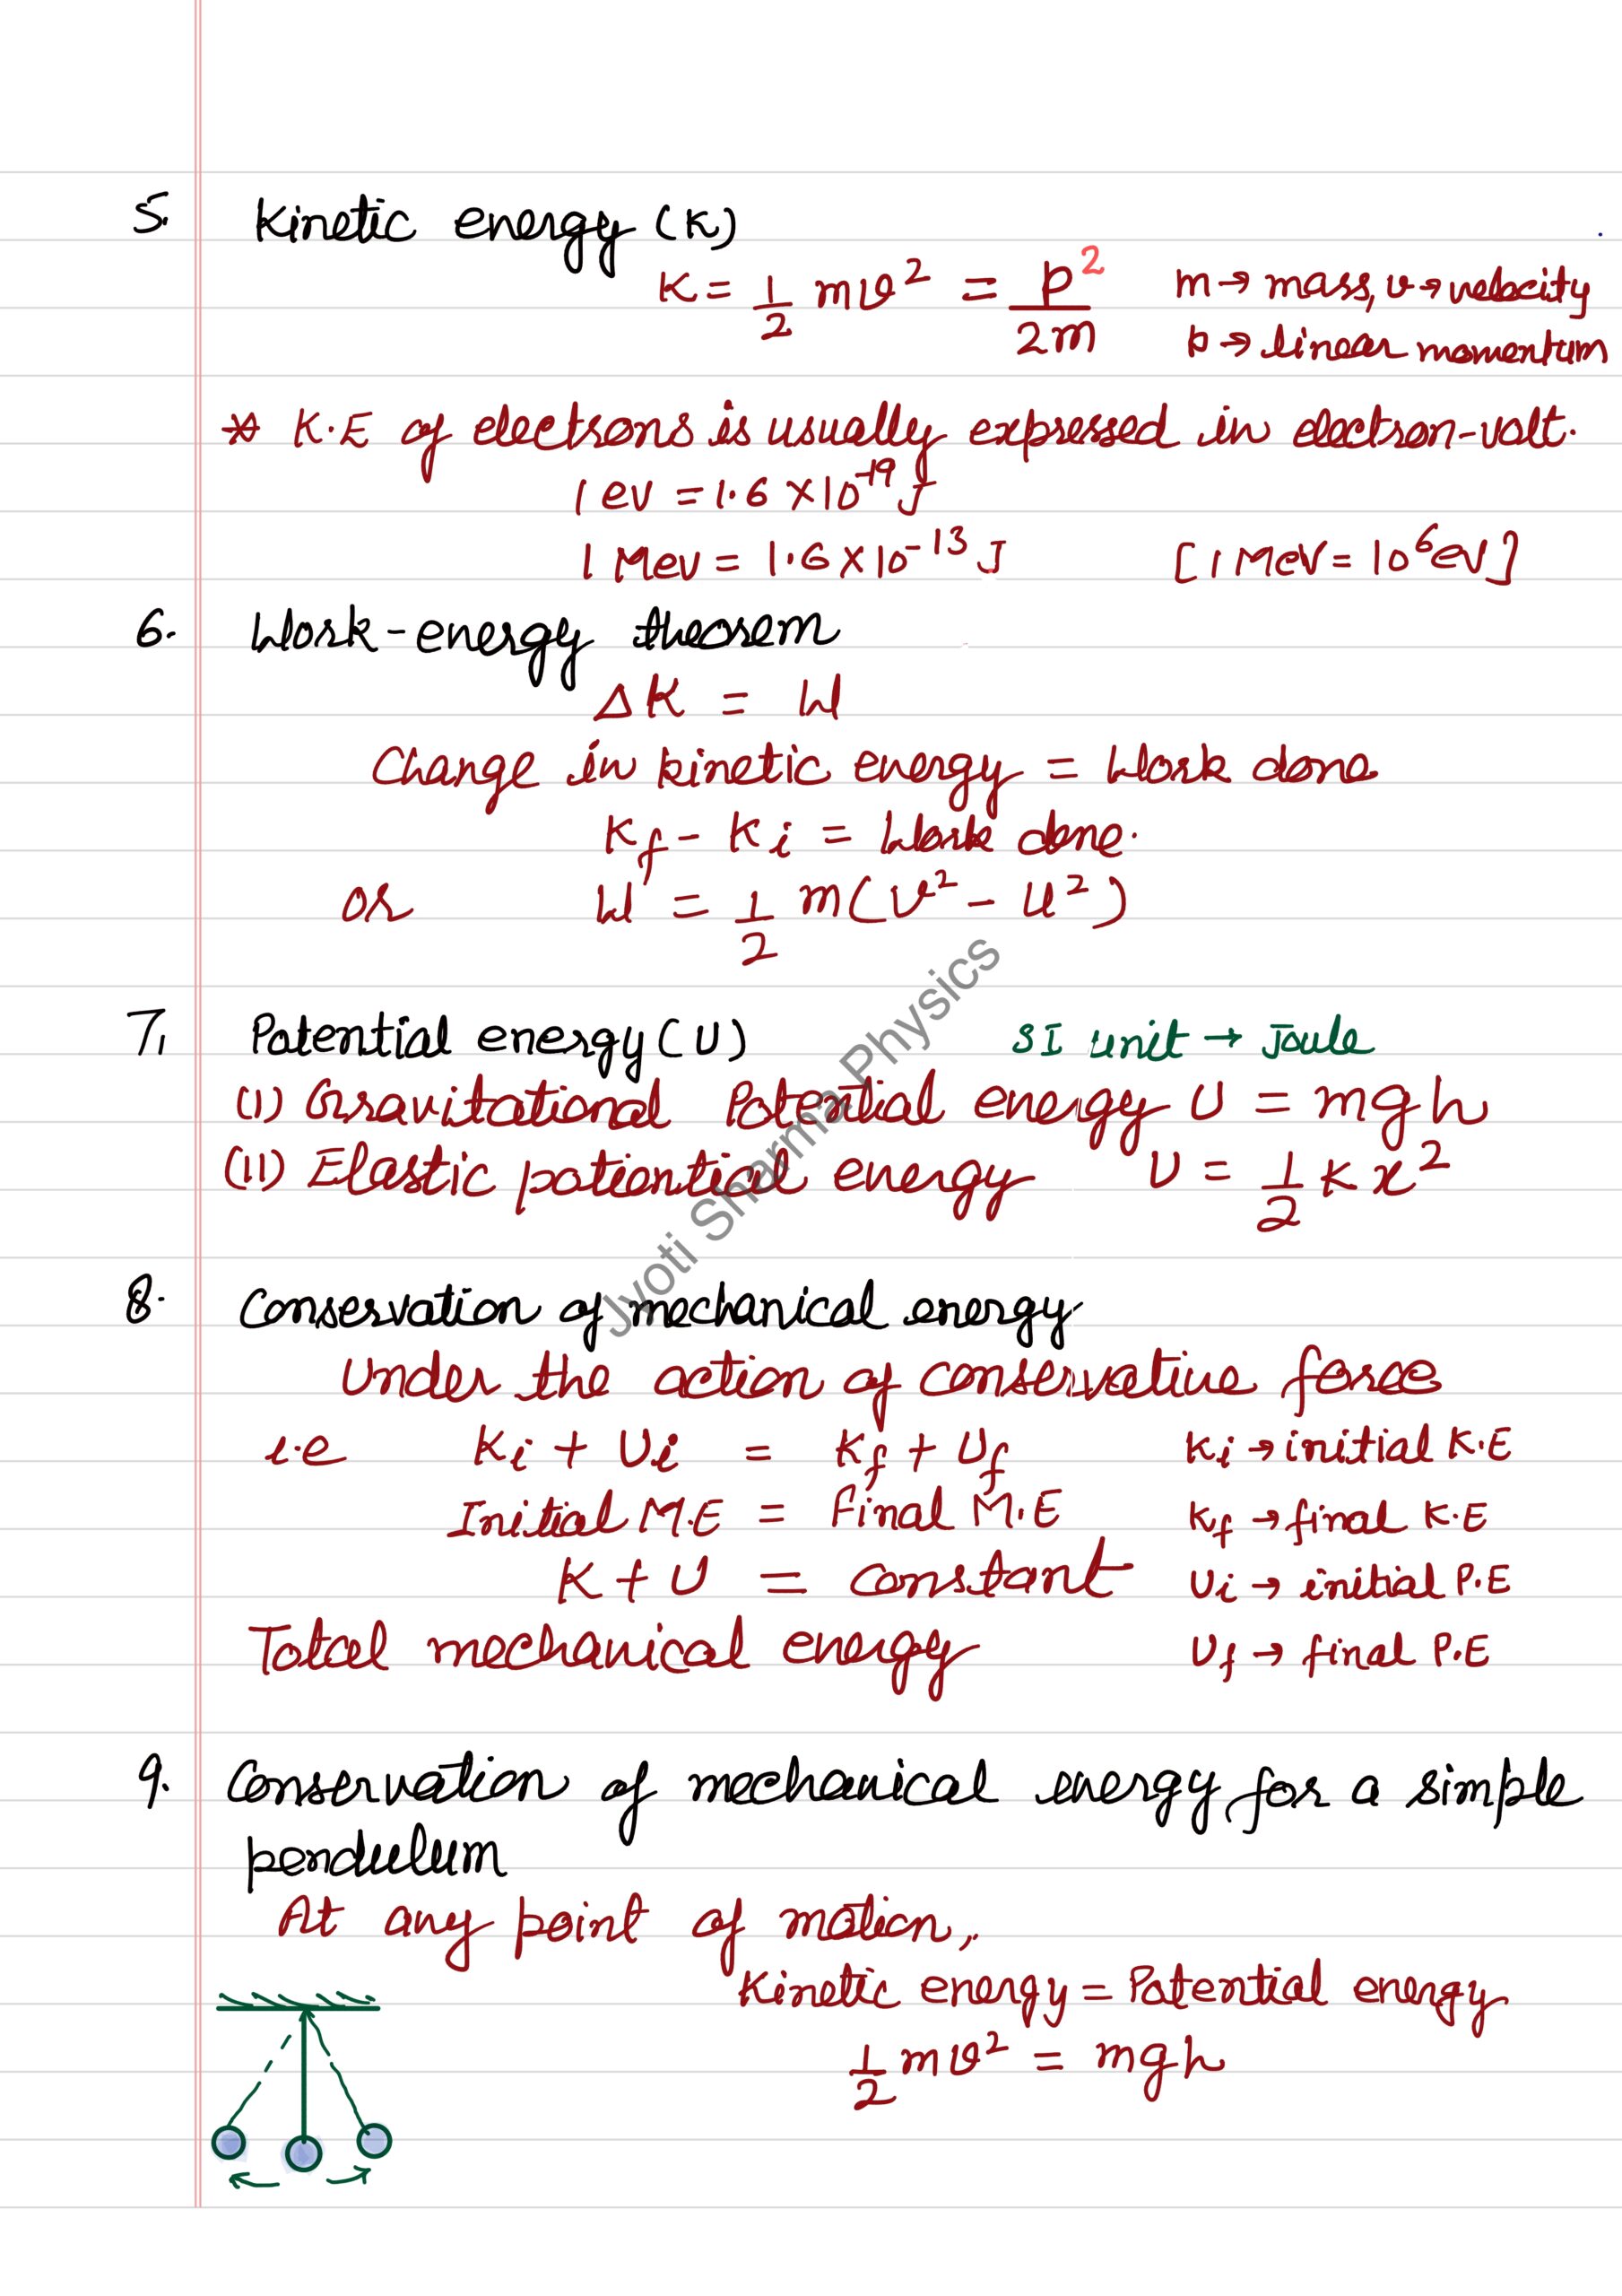 5. Kinetic energy (K)
K = 1/2 mv² = p²/2m   m → mass, v → velocity
p → linear momentum
* K.E of electrons is usually expressed in electron-volt.
1 ev = 1.6 × 10⁻¹⁹ J
1 Mev = 1.6 × 10⁻¹³ J   [1 MeV = 10⁶ eV]
6. Work-energy theorem
ΔK = W
Change in kinetic energy = Work done
Kf - Ki = Work done.
or W = 1/2 m(v² - u²)
7. Potential energy (U)   SI unit → Joule
(i) Gravitational Potential energy U = mgh
(ii) Elastic potiential energy U = 1/2 k x²
8. Conservation of mechanical energy
Under the action of conservative force
i.e Ki + Ui = Kf + Uf   Ki → initial K.E
Initial M.E = Final M.E   Kf → final K.E
K + U = constant   Ui → initial P.E
Total mechanical energy   Uf → final P.E
9. Conservation of mechanical energy for a simple
pendulum
At any point of motion,
Kinetic energy = Potential energy
1/2 mv² = mgh
Jyoti Sharma Physics